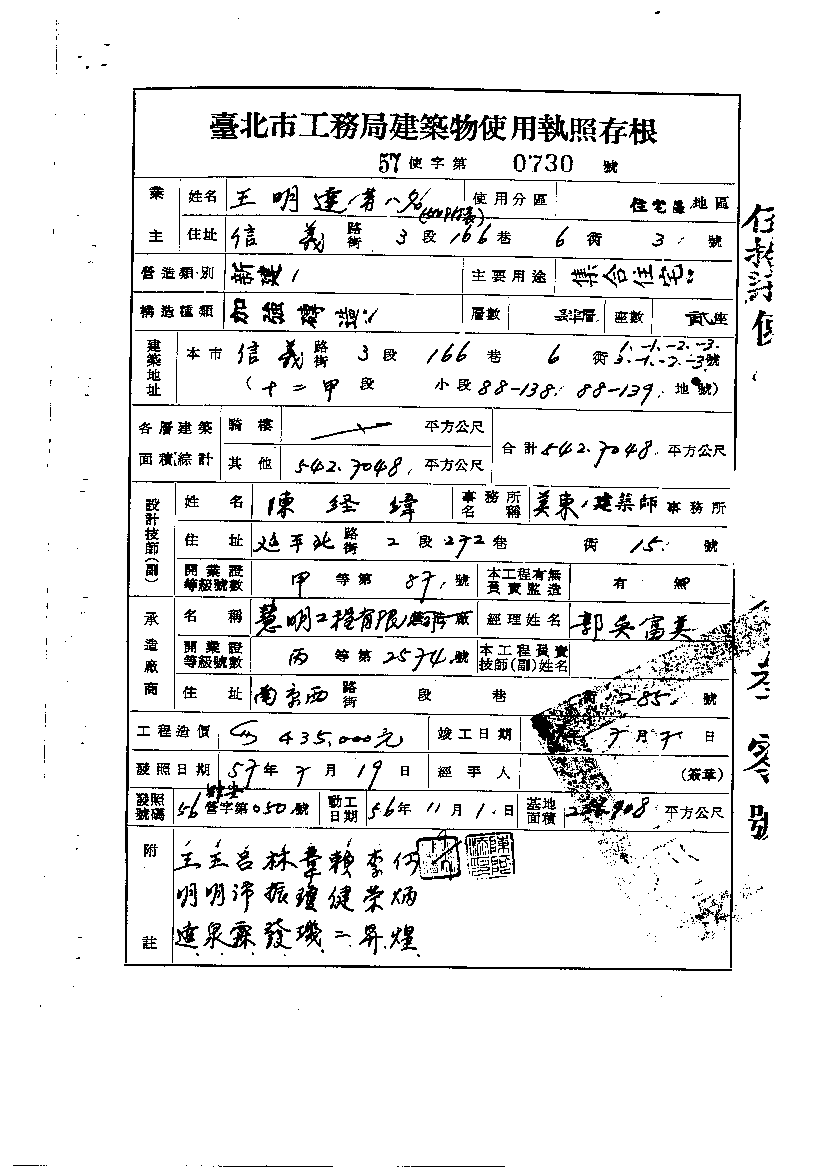 臺北市工務局建築物使用執照存根
57使字第 0730 號
業主 姓名 王明達等八名 使用分區 住宅區地區
住址 信義路街 3段166巷 6衖 3號
營造類別 新建 主要用途 集合住宅
構造種類 加強磚造 層數 層 座數 貳座
建築地址 本市 信義路街 3段 166巷 6衖 1.-1.-2.-3. 3.-1.-2.-3號
(十二甲段 小段88-138. 88-139. 地號)
各層建築面積綜計 騎樓 平方公尺 合計542.7048.平方公尺
其他 542.7048.平方公尺
設計技師(副) 姓名 陳経緯 事務所名稱 美東建築師事務所
住址 延平北路街 2段272巷 衖 15. 號
開業證等級號數 甲等第 87. 號 本工程有無負責監造 有 無
承造廠商 名稱 慧明工程有限 廠 經理姓名 郭吳富美
開業證等級號數 丙等第2574號 本工程負責技師(副)姓名
住址 南京西路街 段 巷 衖 285. 號
工程造價 435,000元 竣工日期 年7月7日
發照日期 57年7月19日 經手人 (簽章)
發照號碼 56 營字第050號 動工日期 56年11月1.日 基地面積 908平方公尺
附註
王王呂林韋賴李何
明明沛振瓊健榮炳
達泉霖發璣二昇煌
零號